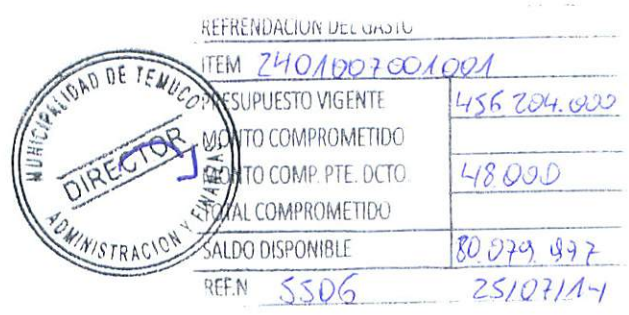 REFRENDACION DEL GASTO
ITEM 2401007001001
PRESUPUESTO VIGENTE 456 204.000
MONTO COMPROMETIDO
MONTO COMP. PTE. DCTO. 48.000
TOTAL COMPROMETIDO
SALDO DISPONIBLE 80.079.997
REF.N 5506 25/07/14
MUNICIPALIDAD DE TEMUCO
DIRECTOR
ADMINISTRACION Y FINANZAS